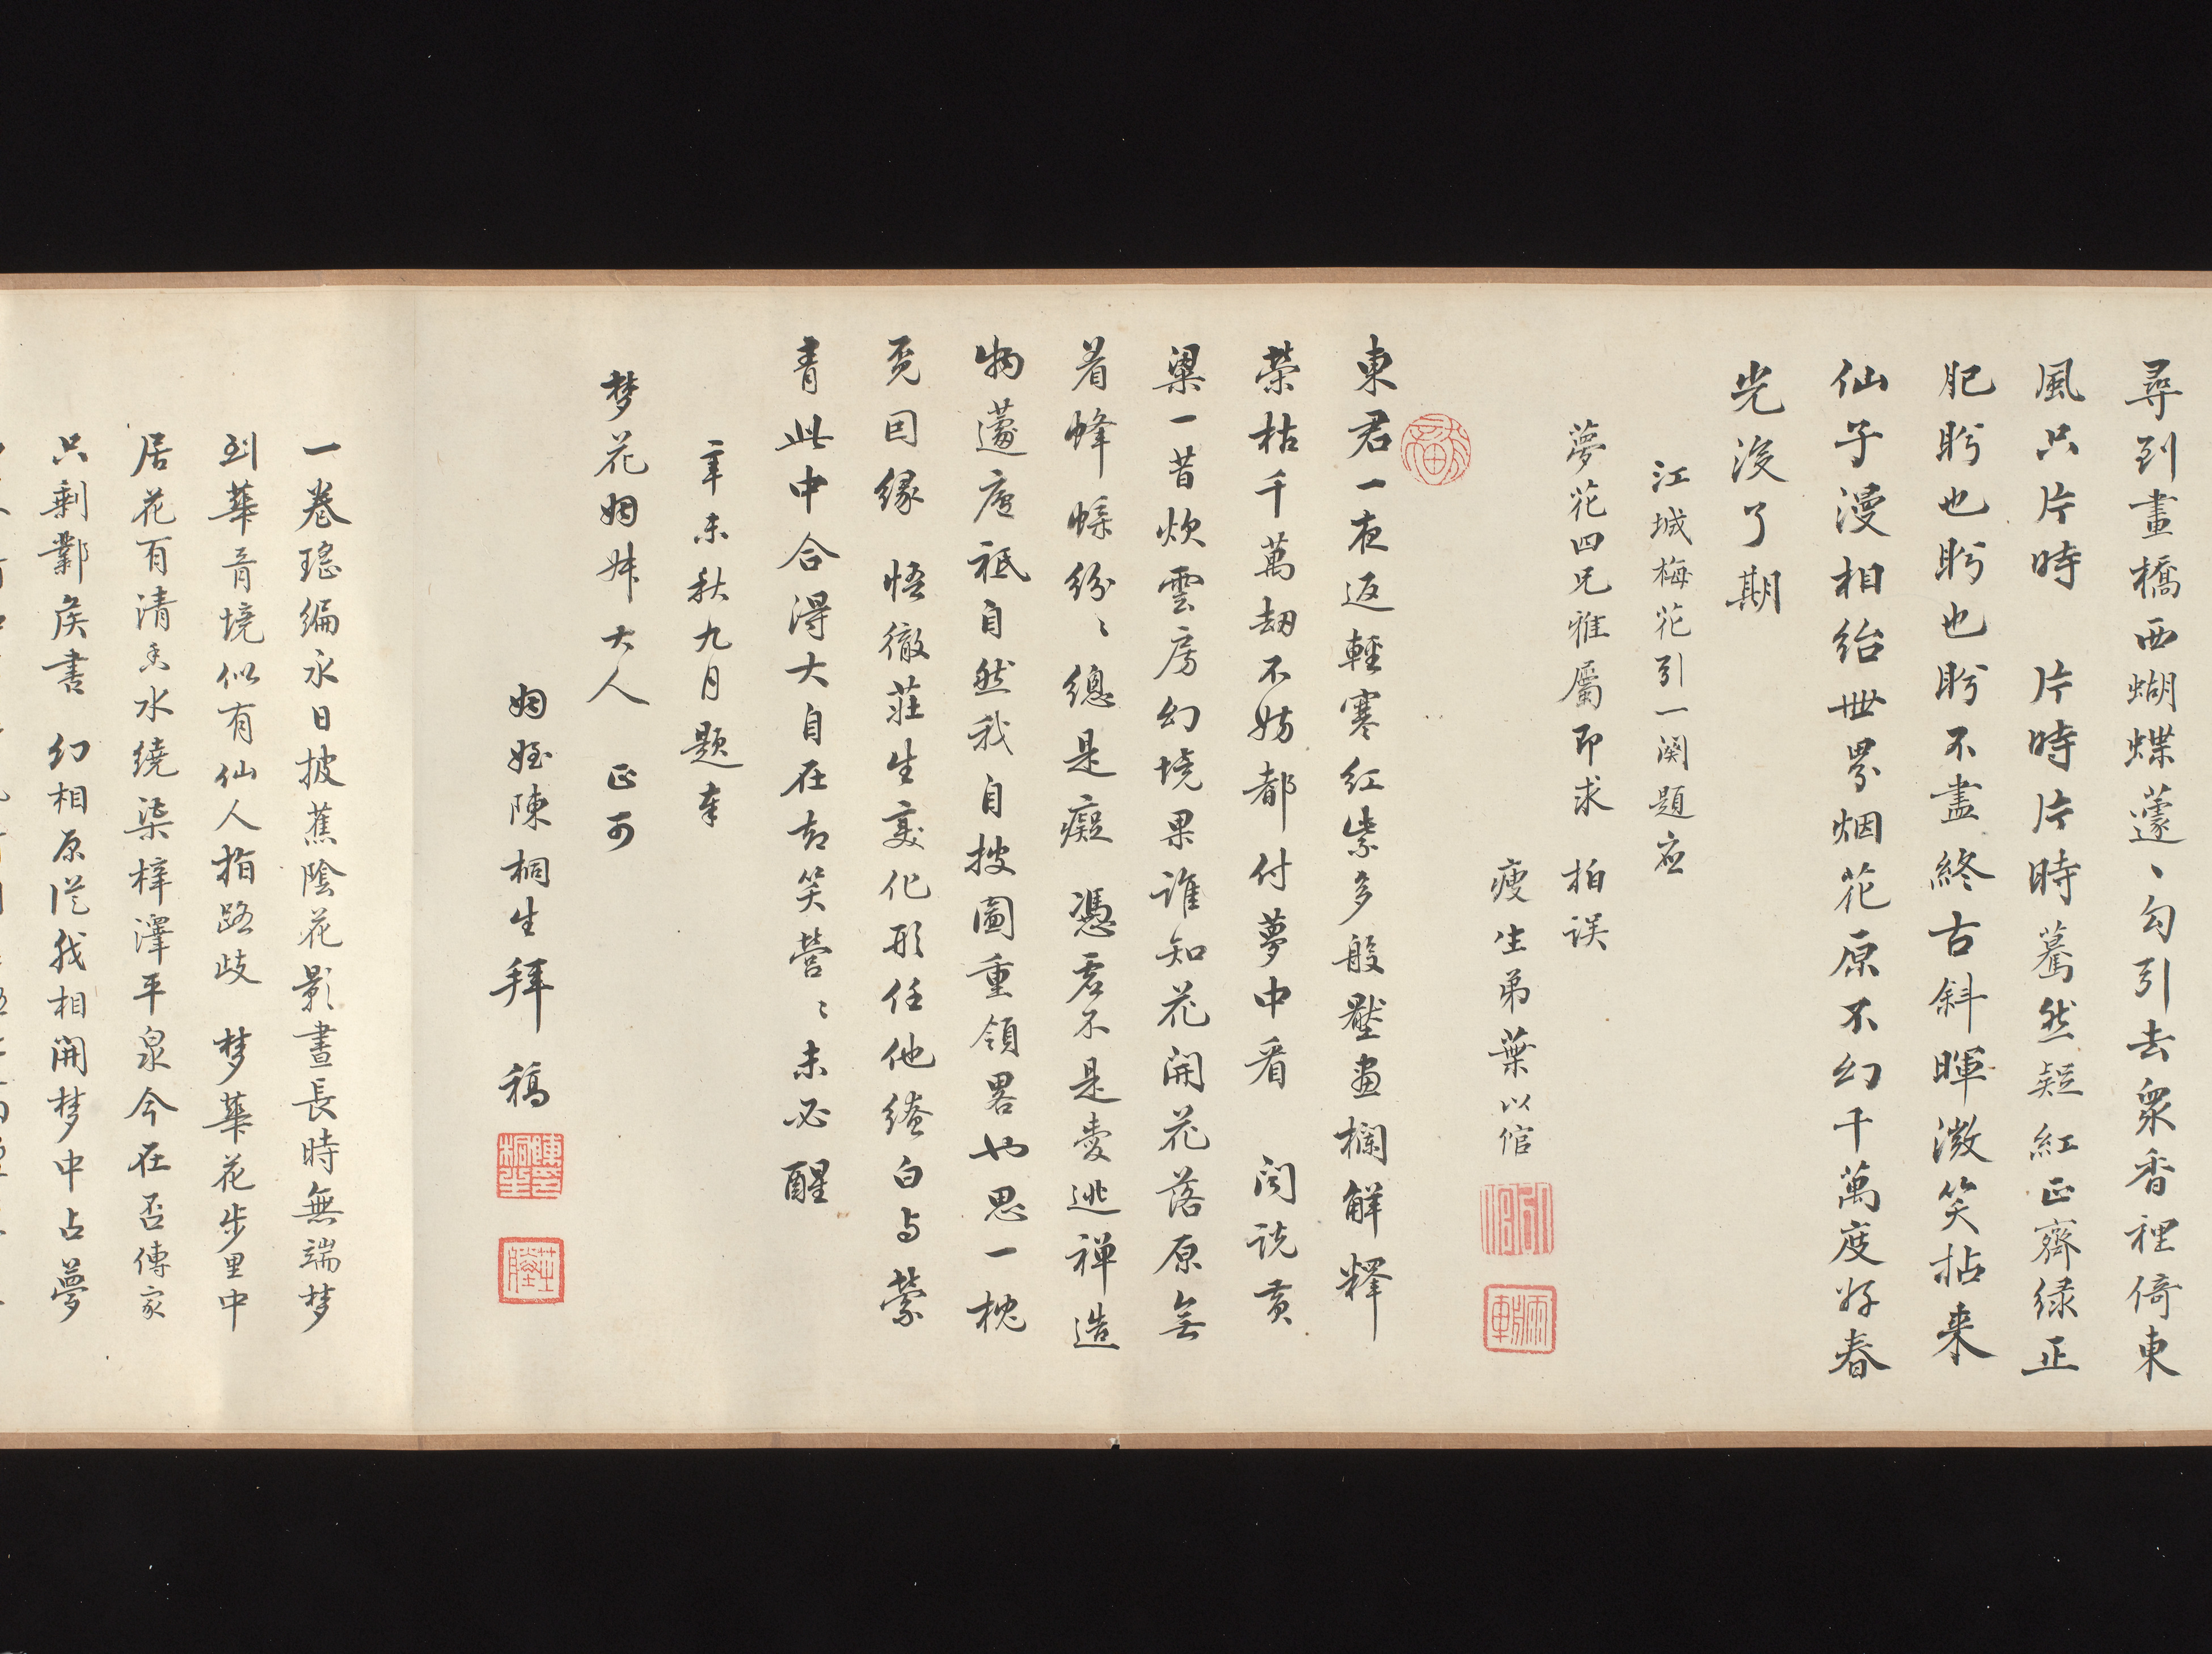 尋到畫橋西蝴蝶蘧丶勾引去衆香裡倚東
風只片時 片時片時驀然疑紅正齊緑正
肥眄也眄也眄不盡終古斜暉微笑拈来
仙子漫相紿世界烟花原不幻千萬度好春
光没了期
江城梅花引一闋題应
夢花四兄雅屬即求 拍誤
瘦生弟葉以倌
東君一夜返輕寒紅紫多般壓畫欄解釋
榮枯千萬劫不妨都付夢中看 闻説黄
粱一昔炊雲房幻境果誰知花開花落原無
着蜂蝶紛〻總是癡 憑君不是愛逃禅造
物蘧廬祇自然我自披圖重領畧也思一枕
覓因緣 悟徹莊生变化形任他綣白与縈
青此中合得大自在却笑營〻未必醒
辛未秋九月題奉
梦花姻舛大人 正可
姻姪陳桐生拜 稿
一卷瑤編永日披蕉陰花影晝長時無端梦
到華胥境似有仙人指路歧 梦華花步里中
居花有清香水繞柒梓澤平泉今在否傳家
只剩鄴侯書 幻相原從我相開梦中占夢